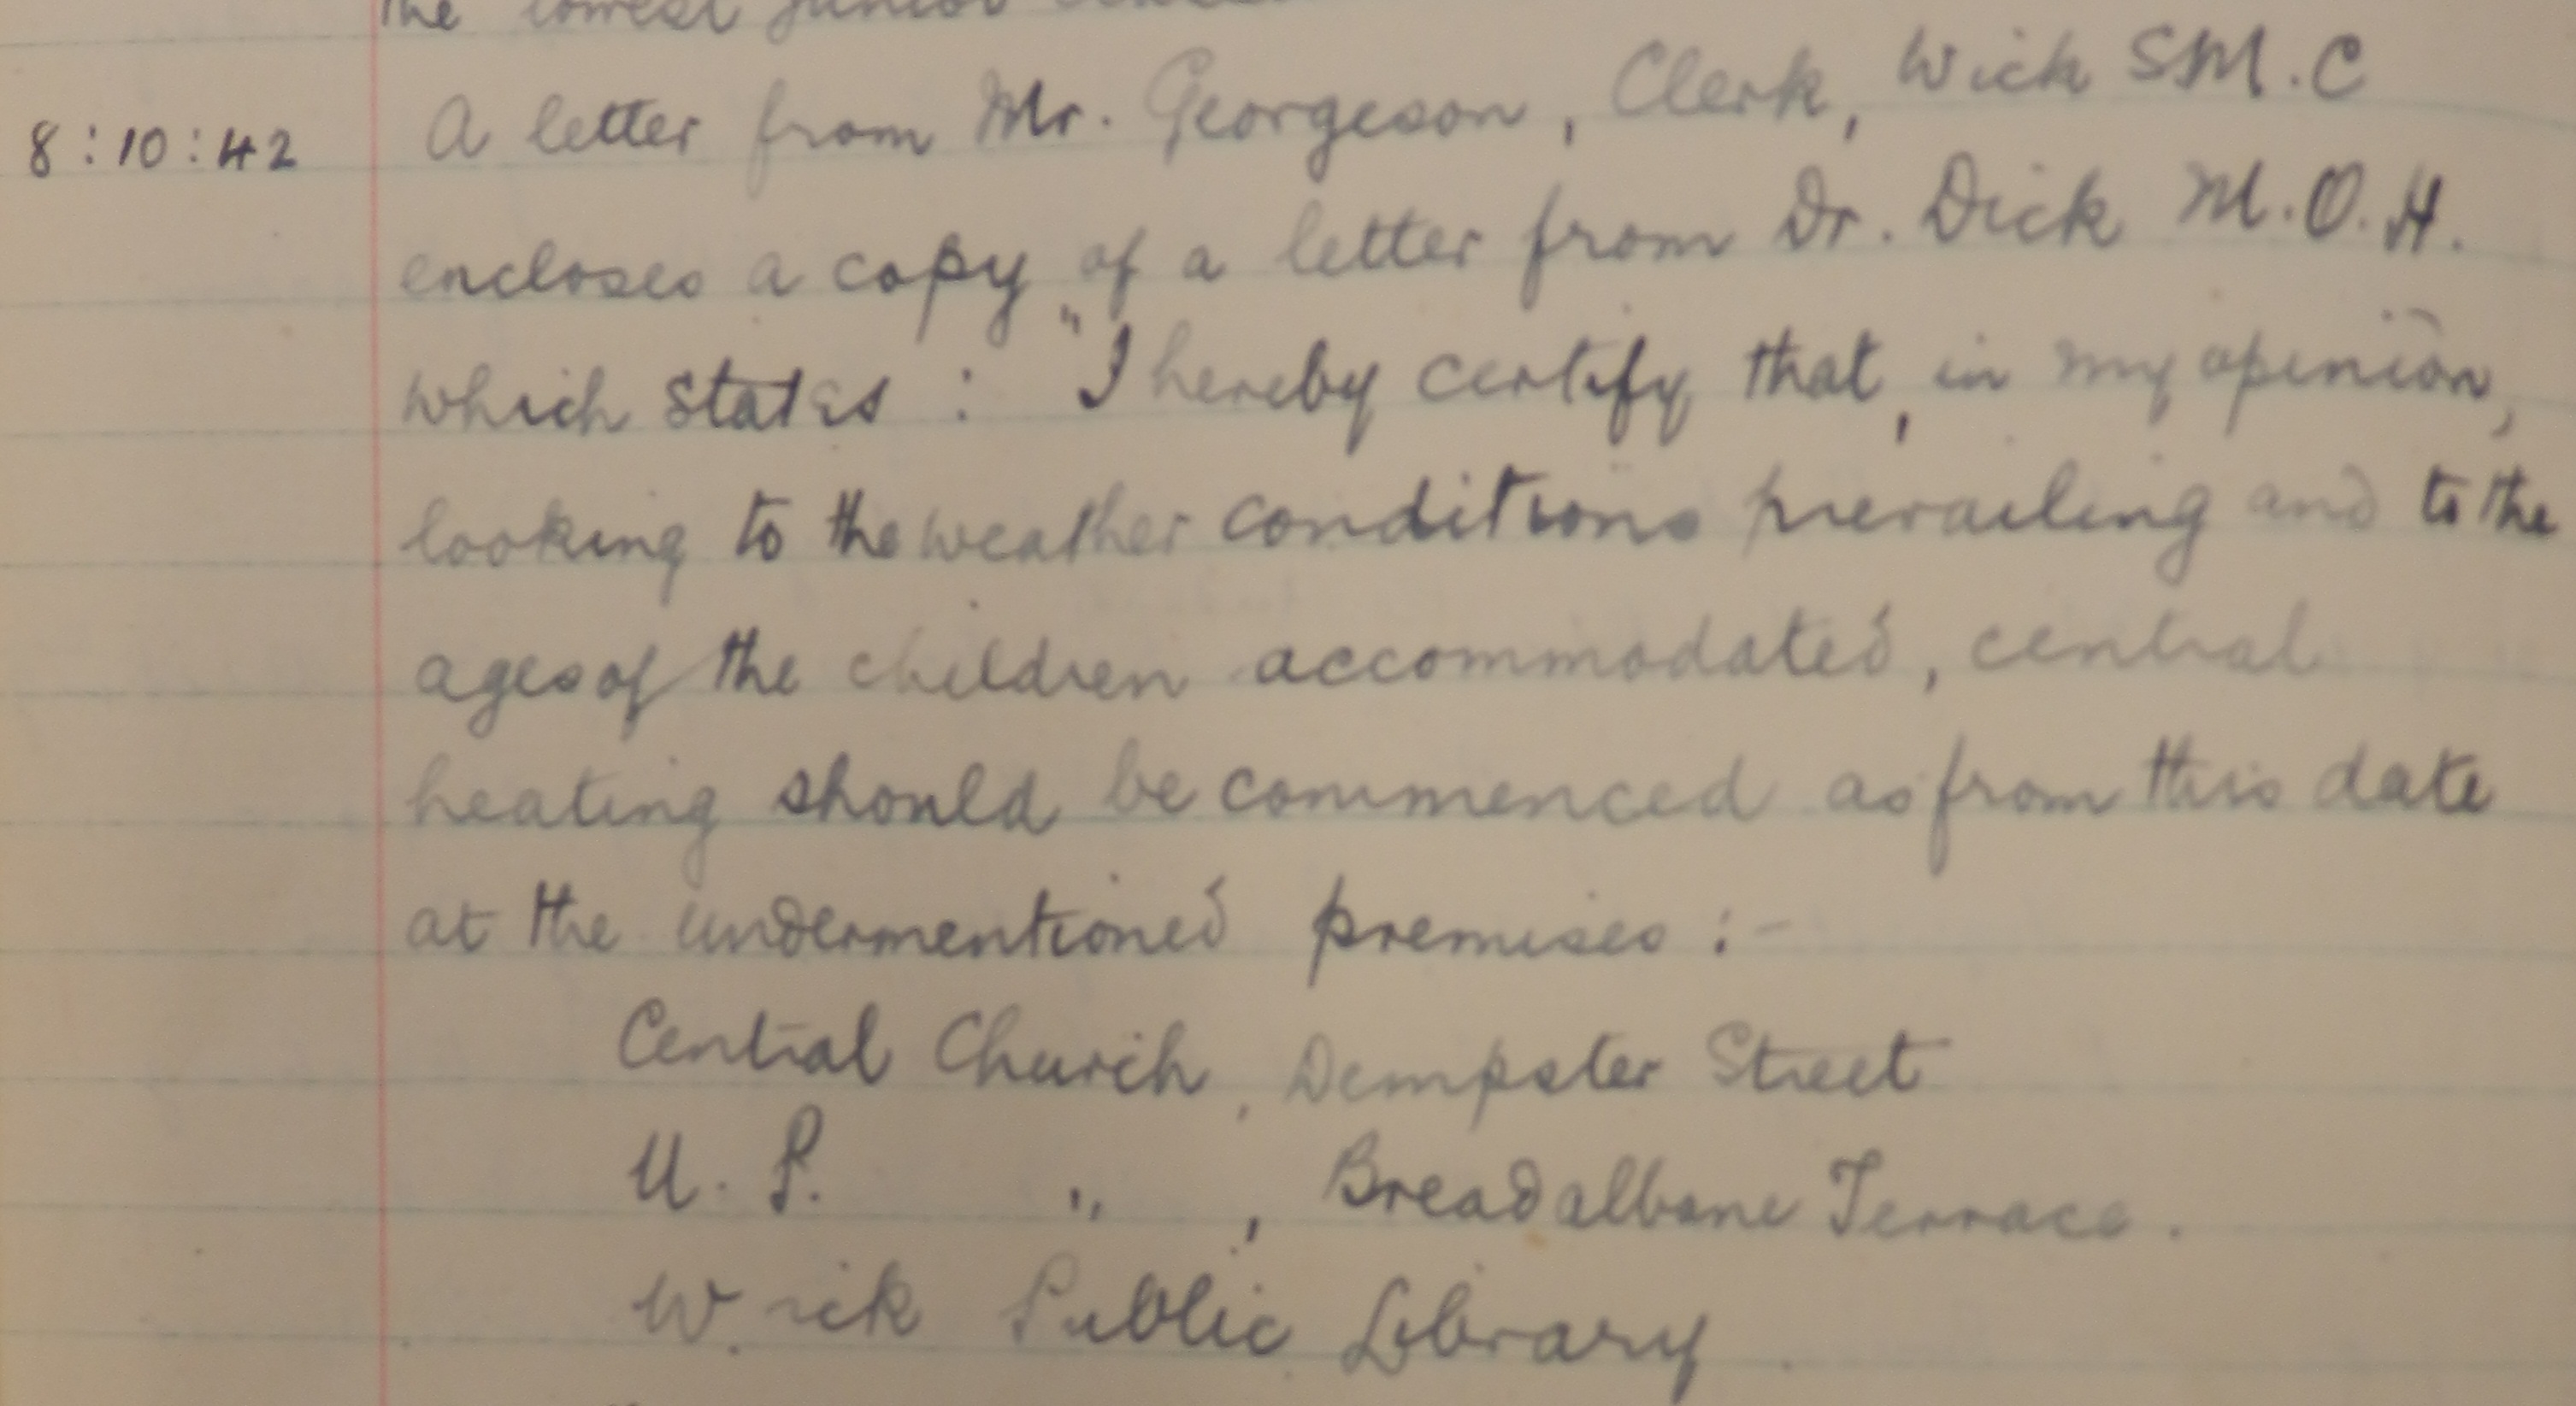 the lowest junior
8:10:42 A letter from Mr. Georgeson, Clerk, Wick SM.C
encloses a copy of a letter from Dr. Dick M.O.H.
which states : "I hereby certify that, in my opinion,
looking to the weather conditions prevailing and to the
ages of the children accommodated, central
heating should be commenced as from this date
at the undermentioned premises :-
Central Church, Dempster Street
U. P. " , Breadalbane Terrace.
Wick Public Library.